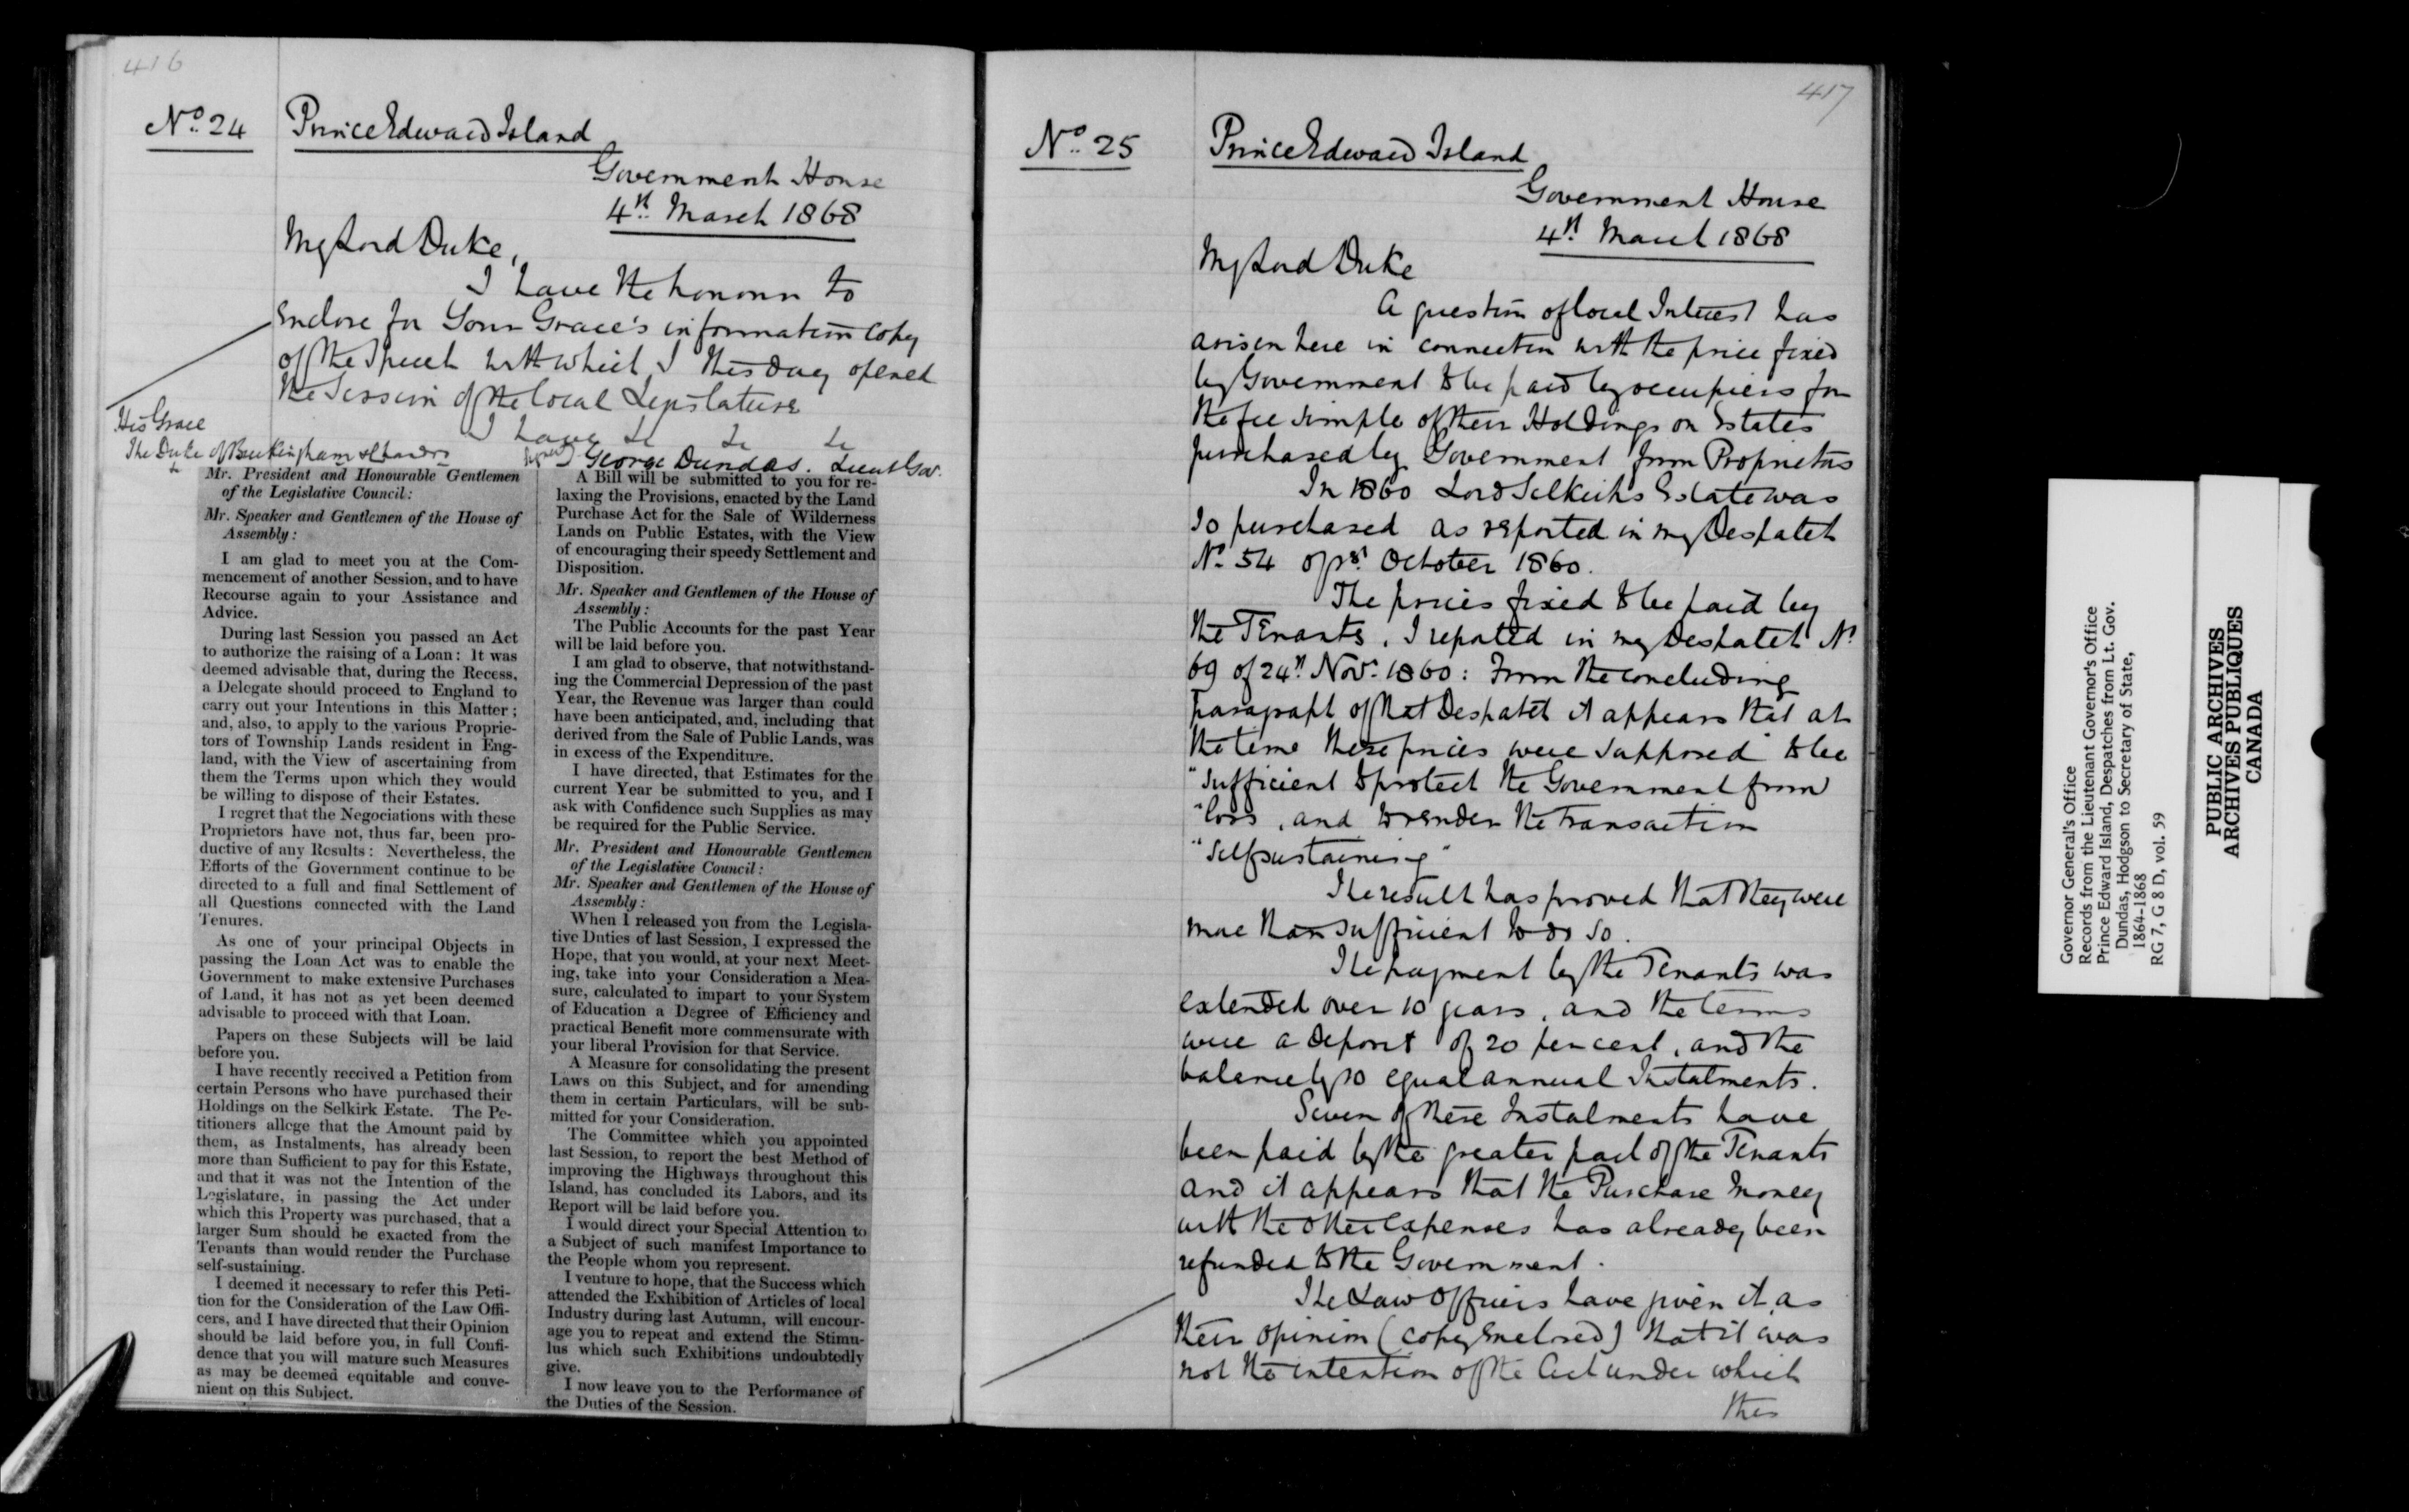 416
No. 24 Prince Edward Island
Government House
4th March 1868
My Lord Duke,
I have the honour to
enclose for Your Grace's information copy
of the Speech with which I this day opened
the Session of the local Legislature
I have &c &c &c
His Grace
The Duke of Buckingham & Chandos
signed George Dundas. Lieut Gov.
Mr. President and Honourable Gentlemen
of the Legislative Council:
Mr. Speaker and Gentlemen of the House of
Assembly:
I am glad to meet you at the Com-
mencement of another Session, and to have
Recourse again to your Assistance and
Advice.
During last Session you passed an Act
to authorize the raising of a Loan: It was
deemed advisable that, during the Recess,
a Delegate should proceed to England to
carry out your Intentions in this Matter;
and, also, to apply to the various Proprie-
tors of Township Lands resident in Eng-
land, with the View of ascertaining from
them the Terms upon which they would
be willing to dispose of their Estates.
I regret that the Negociations with these
Proprietors have not, thus far, been pro-
ductive of any Results: Nevertheless, the
Efforts of the Government continue to be
directed to a full and final Settlement of
all Questions connected with the Land
Tenures.
As one of your principal Objects in
passing the Loan Act was to enable the
Government to make extensive Purchases
of Land, it has not as yet been deemed
advisable to proceed with that Loan.
Papers on these Subjects will be laid
before you.
I have recently received a Petition from
certain Persons who have purchased their
Holdings on the Selkirk Estate. The Pe-
titioners allege that the Amount paid by
them, as Instalments, has already been
more than Sufficient to pay for this Estate,
and that it was not the Intention of the
Legislature, in passing the Act under
which this Property was purchased, that a
larger Sum should be exacted from the
Tenants than would render the Purchase
self-sustaining.
I deemed it necessary to refer this Peti-
tion for the Consideration of the Law Offi-
cers, and I have directed that their Opinion
should be laid before you, in full Confi-
dence that you will mature such Measures
as may be deemed equitable and conve-
nient on this Subject.
A Bill will be submitted to you for re-
laxing the Provisions, enacted by the Land
Purchase Act for the Sale of Wilderness
Lands on Public Estates, with the View
of encouraging their speedy Settlement and
Disposition.
Mr. Speaker and Gentlemen of the House of
Assembly:
The Public Accounts for the past Year
will be laid before you.
I am glad to observe, that notwithstand-
ing the Commercial Depression of the past
Year, the Revenue was larger than could
have been anticipated, and, including that
derived from the Sale of Public Lands, was
in excess of the Expenditure.
I have directed, that Estimates for the
current Year be submitted to you, and I
ask with Confidence such Supplies as may
be required for the Public Service.
Mr. President and Honourable Gentlemen
of the Legislative Council:
Mr. Speaker and Gentlemen of the House of
Assembly:
When I released you from the Legisla-
tive Duties of last Session, I expressed the
Hope, that you would, at your next Meet-
ing, take into your Consideration a Mea-
sure, calculated to impart to your System
of Education a Degree of Efficiency and
practical Benefit more commensurate with
your liberal Provision for that Service.
A Measure for consolidating the present
Laws on this Subject, and for amending
them in certain Particulars, will be sub-
mitted for your Consideration.
The Committee which you appointed
last Session, to report the best Method of
improving the Highways throughout this
Island, has concluded its Labors, and its
Report will be laid before you.
I would direct your Special Attention to
a Subject of such manifest Importance to
the People whom you represent.
I venture to hope, that the Success which
attended the Exhibition of Articles of local
Industry during last Autumn, will encour-
age you to repeat and extend the Stimu-
lus which such Exhibitions undoubtedly
give.
I now leave you to the Performance of
the Duties of the Session.
417
No. 25 Prince Edward Island
Government House
4th March 1868
My Lord Duke
A question of local Interest has
arisen here in connection with the price fixed
by Government to be paid by occupiers for
the fee simple of their Holdings on Estates
purchased by Government from Proprietors
In 1860 Lord Selkirk's Estate was
so purchased as reported in my Despatch
No. 54 of 1st October 1860.
The prices fixed to be paid by
the Tenants, I reported in my Despatch No.
69 of 24th Novr. 1860: From the concluding
paragraph of that Despatch it appears that at
the time these prices were supposed "to be
"sufficient to protect the Government from
"loss, and to render the transaction
"self sustaining"
The result has proved that they were
more than sufficient to do so.
The payment by the Tenants was
extended over 10 years, and the terms
were a deposit of 20 per cent, and the
balance by 10 equal annual Instalments.
Seven of these Instalments have
been paid by the greater part of the Tenants
and it appears that the Purchase money
with the other expenses has already been
refunded to the Government.
The Law Officers have given it as
their opinion (copy enclosed) that it was
not the intention of the Act under which
this
Governor General's Office
Records from the Lieutenant Governor's Office
Prince Edward Island, Despatches from Lt. Gov.
Dundas, Hodgson to Secretary of State,
1864-1868
RG 7, G 8 D, vol. 59
PUBLIC ARCHIVES
ARCHIVES PUBLIQUES
CANADA